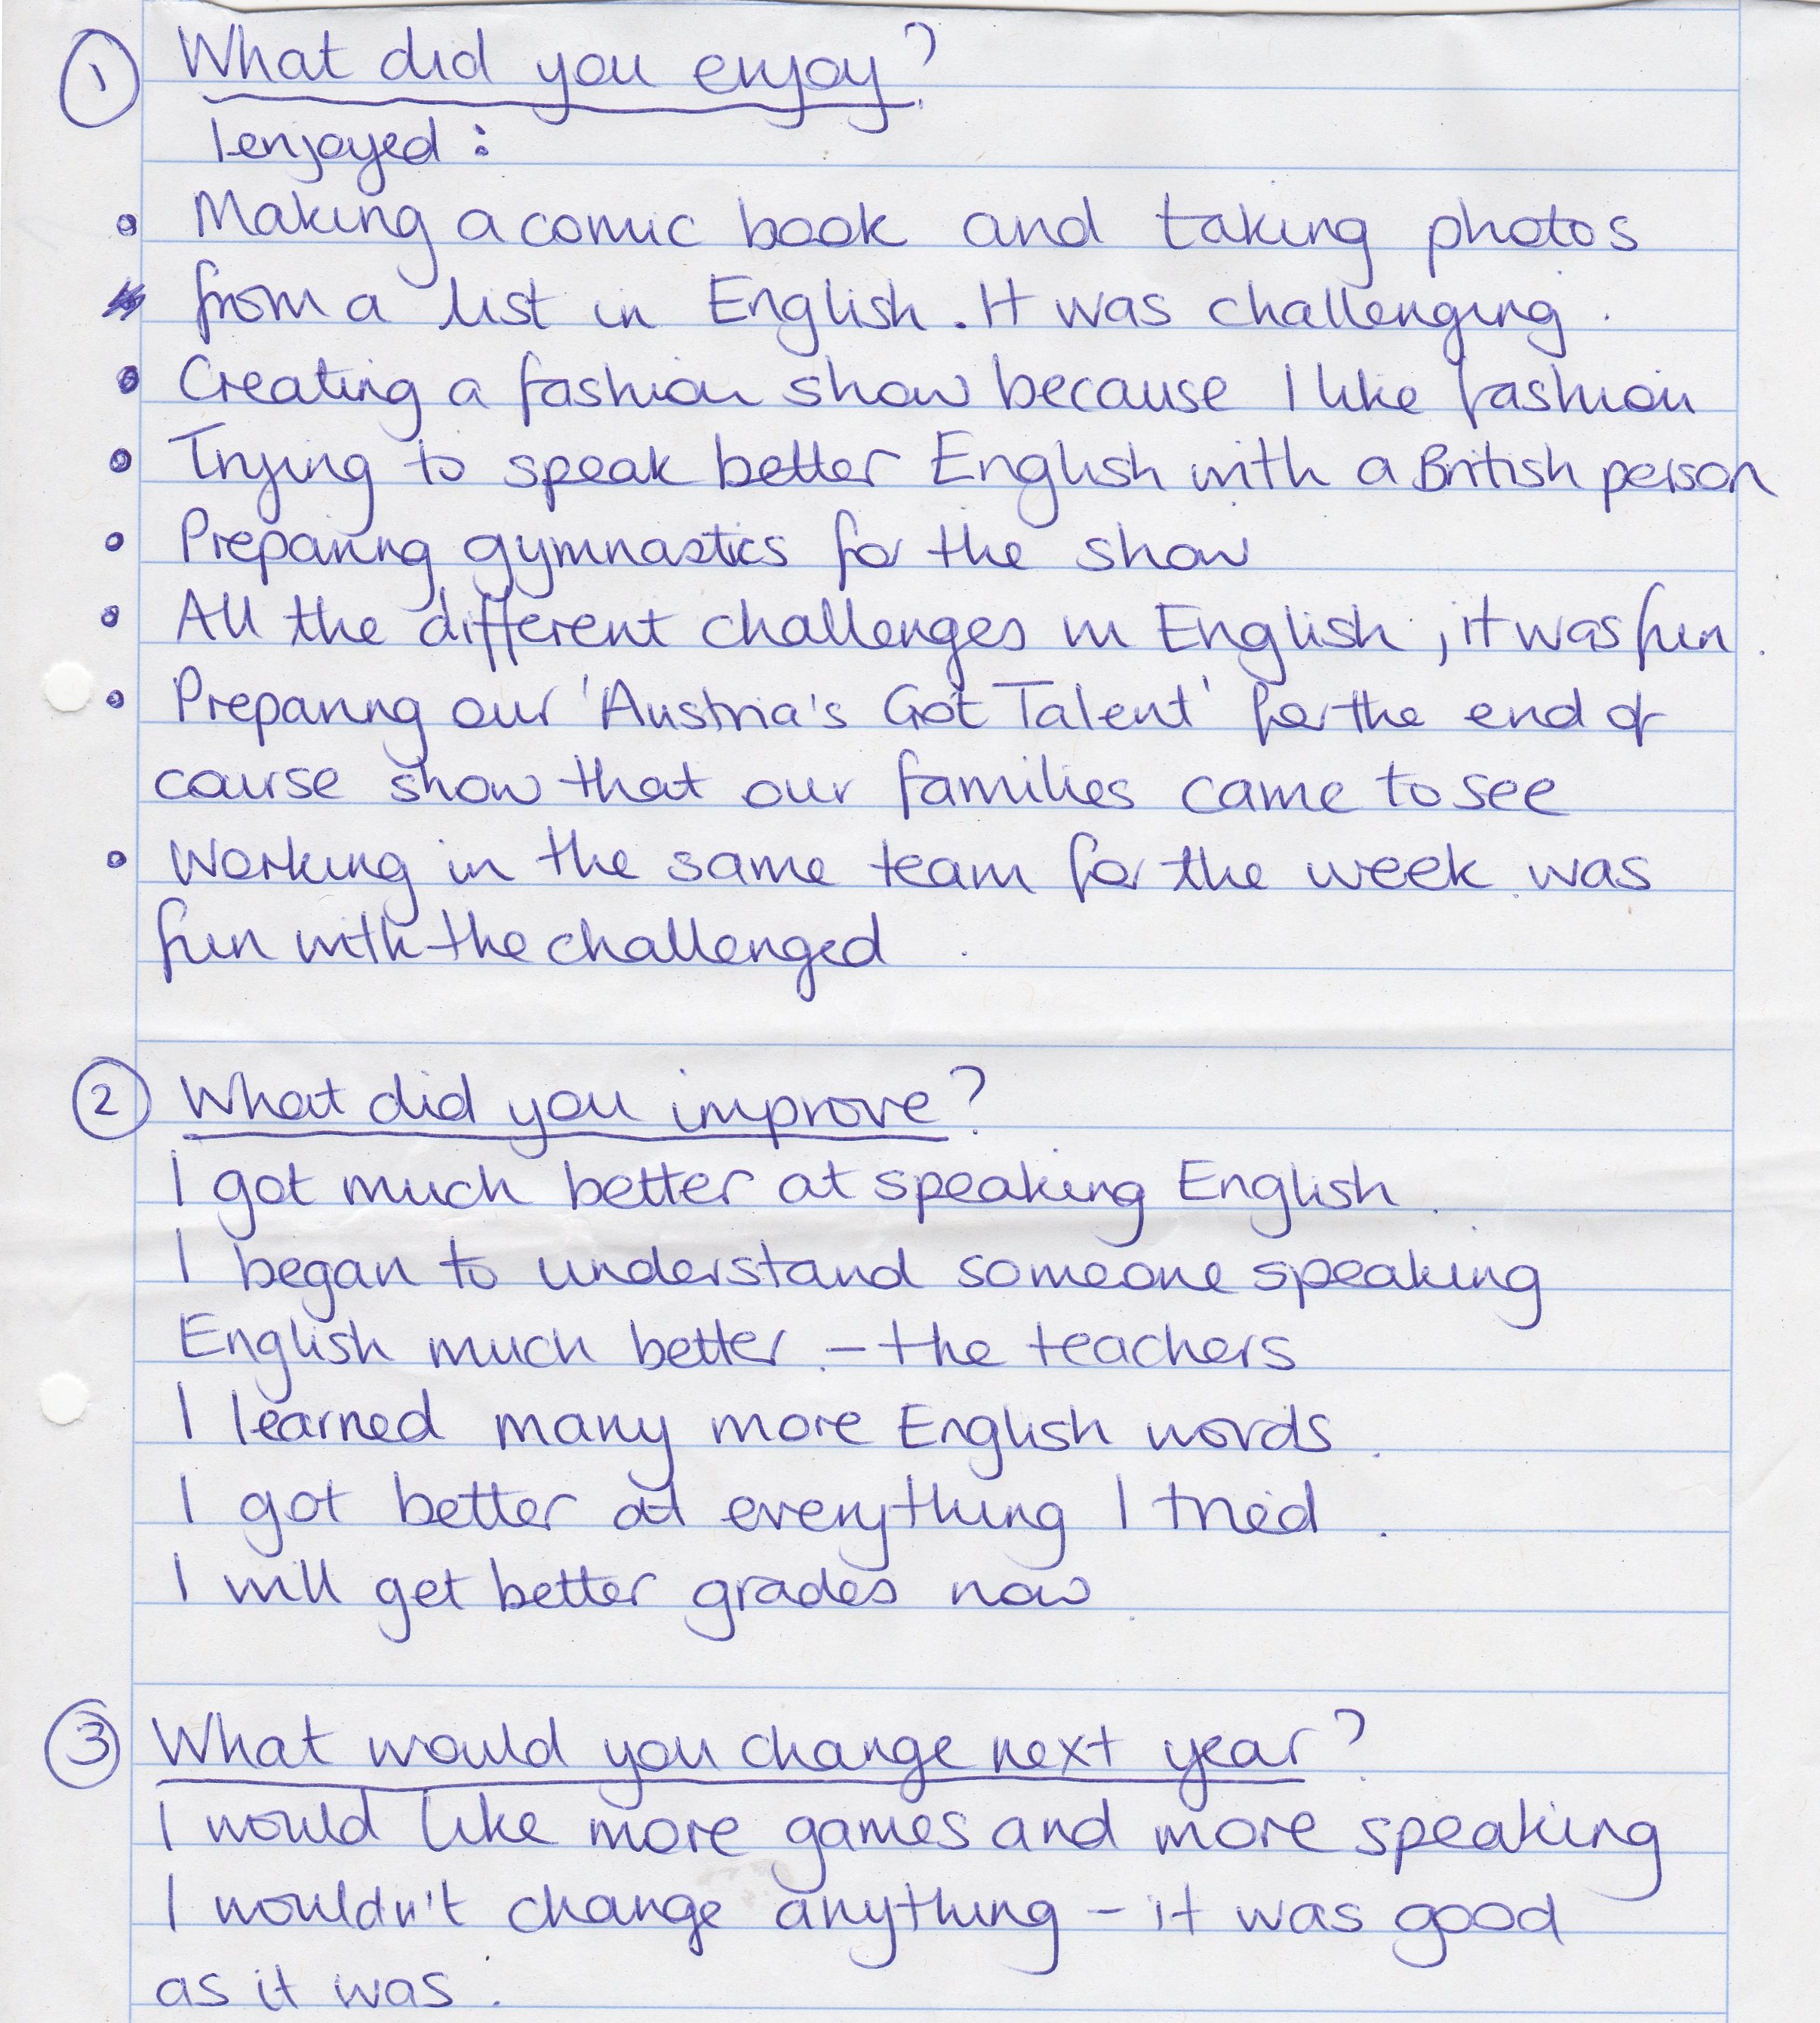 ① What did you enjoy?
I enjoyed :
• Making a comic book and taking photos
from a list in English. It was challenging.
• Creating a fashion show because I like fashion
• Trying to speak better English with a British person
• Preparing gymnastics for the show
• All the different challenges in English, it was fun.
• Preparing our 'Austria's Got Talent' for the end of
course show that our families came to see
• Working in the same team for the week was
fun with the challenged.
② What did you improve?
I got much better at speaking English.
I began to understand someone speaking
English much better - the teachers
I learned many more English words.
I got better at everything I tried.
I will get better grades now.
③ What would you change next year?
I would like more games and more speaking
I wouldn't change anything - it was good
as it was.